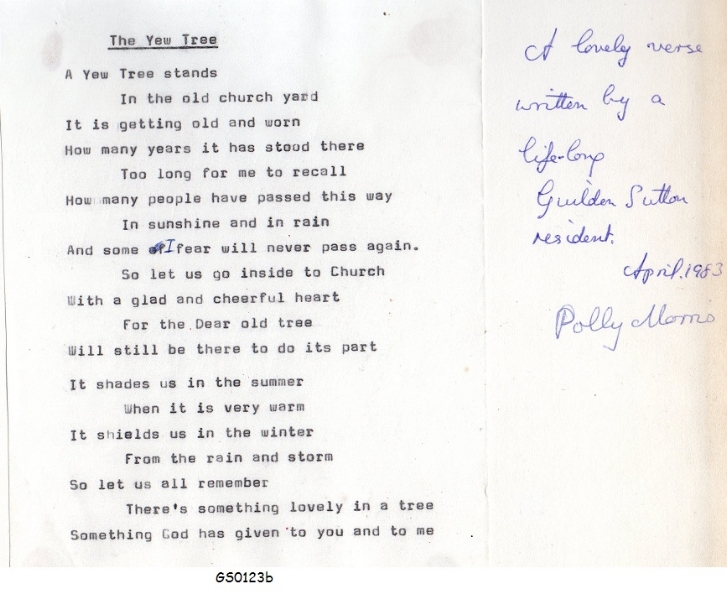 The Yew Tree
A Yew Tree stands
In the old church yard
It is getting old and worn
How many years it has stood there
Too long for me to recall
How many people have passed this way
In sunshine and in rain
And some I fear will never pass again.
So let us go inside to Church
With a glad and cheerful heart
For the Dear old tree
Will still be there to do its part
It shades us in the summer
When it is very warm
It shields us in the winter
From the rain and storm
So let us all remember
There's something lovely in a tree
Something God has given to you and to me
A lovely verse
written by a
life-long
Guilden Sutton
resident.
April.1983
Polly Morris
GS0123b